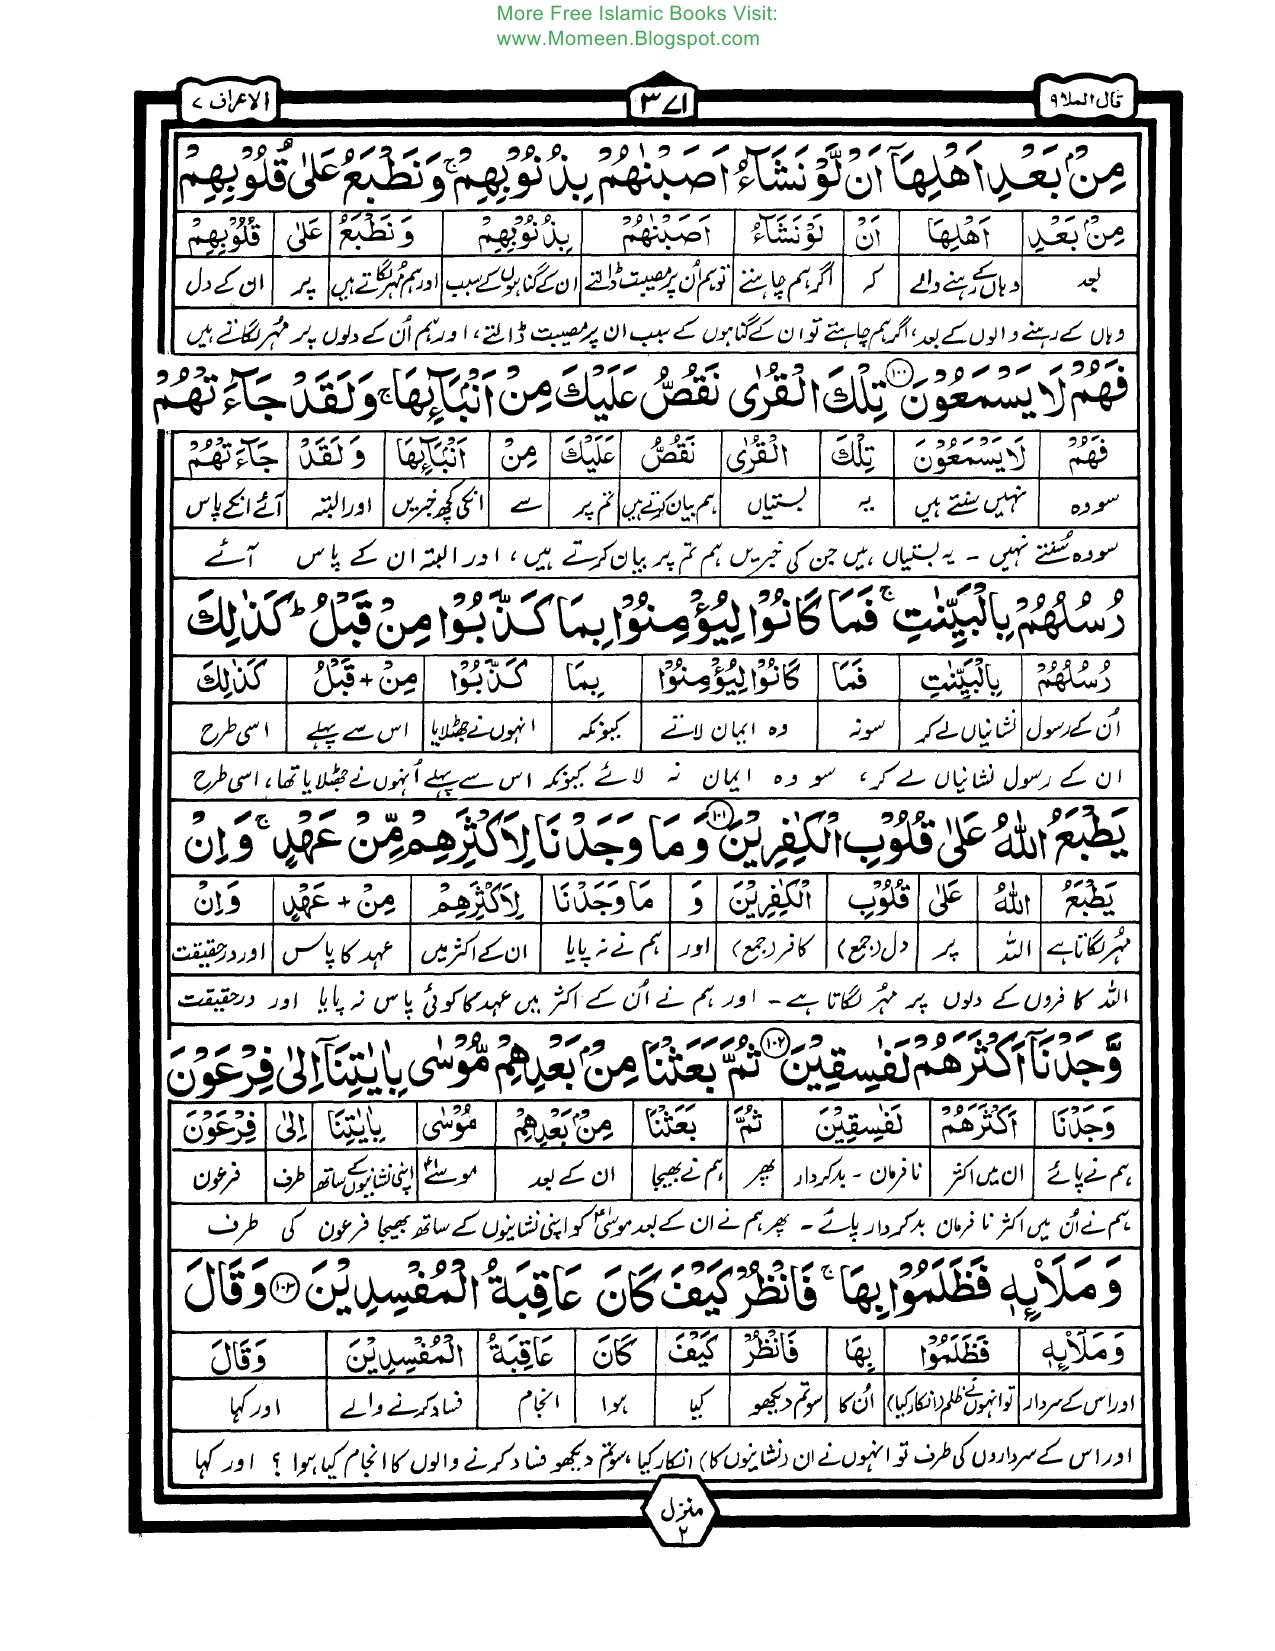 More Free Islamic Books Visit:
www.Momeen.Blogspot.com
قال الملا ۹
۳۷۱
الاعراف ۷
مِنْۢ بَعْدِ اَهْلِهَاۤ اَنْ لَّوْ نَشَآءُ اَصَبْنٰهُمْ بِذُنُوْبِهِمْ ۚ وَنَطْبَعُ عَلٰی قُلُوْبِهِمْ
مِنْۢ بَعْدِ اَهْلِهَا اَنْ لَوْ نَشَآءُ اَصَبْنٰهُمْ بِذُنُوْبِهِمْ وَنَطْبَعُ عَلٰی قُلُوْبِهِمْ
بعد وہاں کے رہنے والے کہ اگر ہم چاہتے تو ہم اُن پر مصیبت ڈالتے ان کے گناہوں کے سبب اور ہم مُہر لگاتے ہیں پر ان کے دل
وہاں کے رہنے والوں کے بعد، اگر ہم چاہتے تو ان کے گناہوں کے سبب ان پر مصیبت ڈالتے، اور ہم اُن کے دلوں پر مہُر لگاتے ہیں
فَهُمْ لَا یَسْمَعُوْنَ ۱۰۰ تِلْكَ الْقُرٰی نَقُصُّ عَلَیْكَ مِنْ اَنْۢبَآئِهَا ۚ وَلَقَدْ جَآءَتْهُمْ
فَهُمْ لَا یَسْمَعُوْنَ تِلْكَ الْقُرٰی نَقُصُّ عَلَیْكَ مِنْ اَنْۢبَآئِهَا وَلَقَدْ جَآءَتْهُمْ
سو وہ نہیں سنتے ہیں یہ بستیاں ہم بیان کرتے ہیں تم پر سے انکی کچھ خبریں اور البتہ آئے انکے پاس
سو وہ سُنتے نہیں - یہ بستیاں ہیں جن کی خبریں ہم تم پر بیان کرتے ہیں، اور البتہ ان کے پاس آئے
رُسُلُهُمْ بِالْبَیِّنٰتِ ۚ فَمَا كَانُوْا لِیُؤْمِنُوْا بِمَا كَذَّبُوْا مِنْ قَبْلُ ؕ كَذٰلِكَ
رُسُلُهُمْ بِالْبَیِّنٰتِ فَمَا كَانُوْا لِیُؤْمِنُوْا بِمَا كَذَّبُوْا مِنْ + قَبْلُ كَذٰلِكَ
اُن کے رسول نشانیاں لے کر سو نہ وہ ایمان لاتے کیونکہ انہوں نے جھٹلایا اس سے پہلے اسی طرح
ان کے رسول نشانیاں لے کر، سو وہ ایمان نہ لائے کیونکہ اس سے پہلے اُنہوں نے جھٹلایا تھا، اسی طرح
یَطْبَعُ اللّٰهُ عَلٰی قُلُوْبِ الْكٰفِرِیْنَ ۱۰۱ وَمَا وَجَدْنَا لِاَكْثَرِهِمْ مِّنْ عَهْدٍ ۚ وَاِنْ
یَطْبَعُ اللّٰهُ عَلٰی قُلُوْبِ الْكٰفِرِیْنَ وَ مَا وَجَدْنَا لِاَكْثَرِهِمْ مِنْ + عَهْدٍ وَاِنْ
مُہر لگاتا ہے اللہ پر دل (جمع) کافر (جمع) اور ہم نے نہ پایا ان کے اکثر میں عہد کا پاس اور درحقیقت
اللہ کافروں کے دلوں پر مہُر لگاتا ہے - اور ہم نے اُن کے اکثر میں عہد کا کوئی پاس نہ پایا اور درحقیقت
وَّجَدْنَاۤ اَكْثَرَهُمْ لَفٰسِقِیْنَ ۱۰۲ ثُمَّ بَعَثْنَا مِنْۢ بَعْدِهِمْ مُّوْسٰی بِاٰیٰتِنَاۤ اِلٰی فِرْعَوْنَ
وَجَدْنَا اَكْثَرَهُمْ لَفٰسِقِیْنَ ثُمَّ بَعَثْنَا مِنْۢ بَعْدِهِمْ مُوْسٰی بِاٰیٰتِنَا اِلٰی فِرْعَوْنَ
ہم نے پائے ان میں اکثر نافرمان - بدکردار پھر ہم نے بھیجا ان کے بعد موسیٰؑ اپنی نشانیوں کے ساتھ طرف فرعون
ہم نے اُن میں اکثر نافرمان بدکردار پائے - پھر ہم نے ان کے بعد موسیٰؑ کو اپنی نشانیوں کے ساتھ بھیجا فرعون کی طرف
وَمَلَا۟ئِهٖ فَظَلَمُوْا بِهَا ۚ فَانْظُرْ كَیْفَ كَانَ عَاقِبَةُ الْمُفْسِدِیْنَ ۱۰۳ وَقَالَ
وَمَلَا۟ئِهٖ فَظَلَمُوْا بِهَا فَانْظُرْ كَیْفَ كَانَ عَاقِبَةُ الْمُفْسِدِیْنَ وَقَالَ
اور اس کے سردار تو انہوں نے ظلم (انکار کیا) اُن کا سو تم دیکھو کیا ہوا انجام فساد کرنے والے اور کہا
اور اس کے سرداروں کی طرف تو انہوں نے ان (نشانیوں کا) انکار کیا، سو تم دیکھو فساد کرنے والوں کا انجام کیا ہوا ؟ اور کہا
منزل
۲